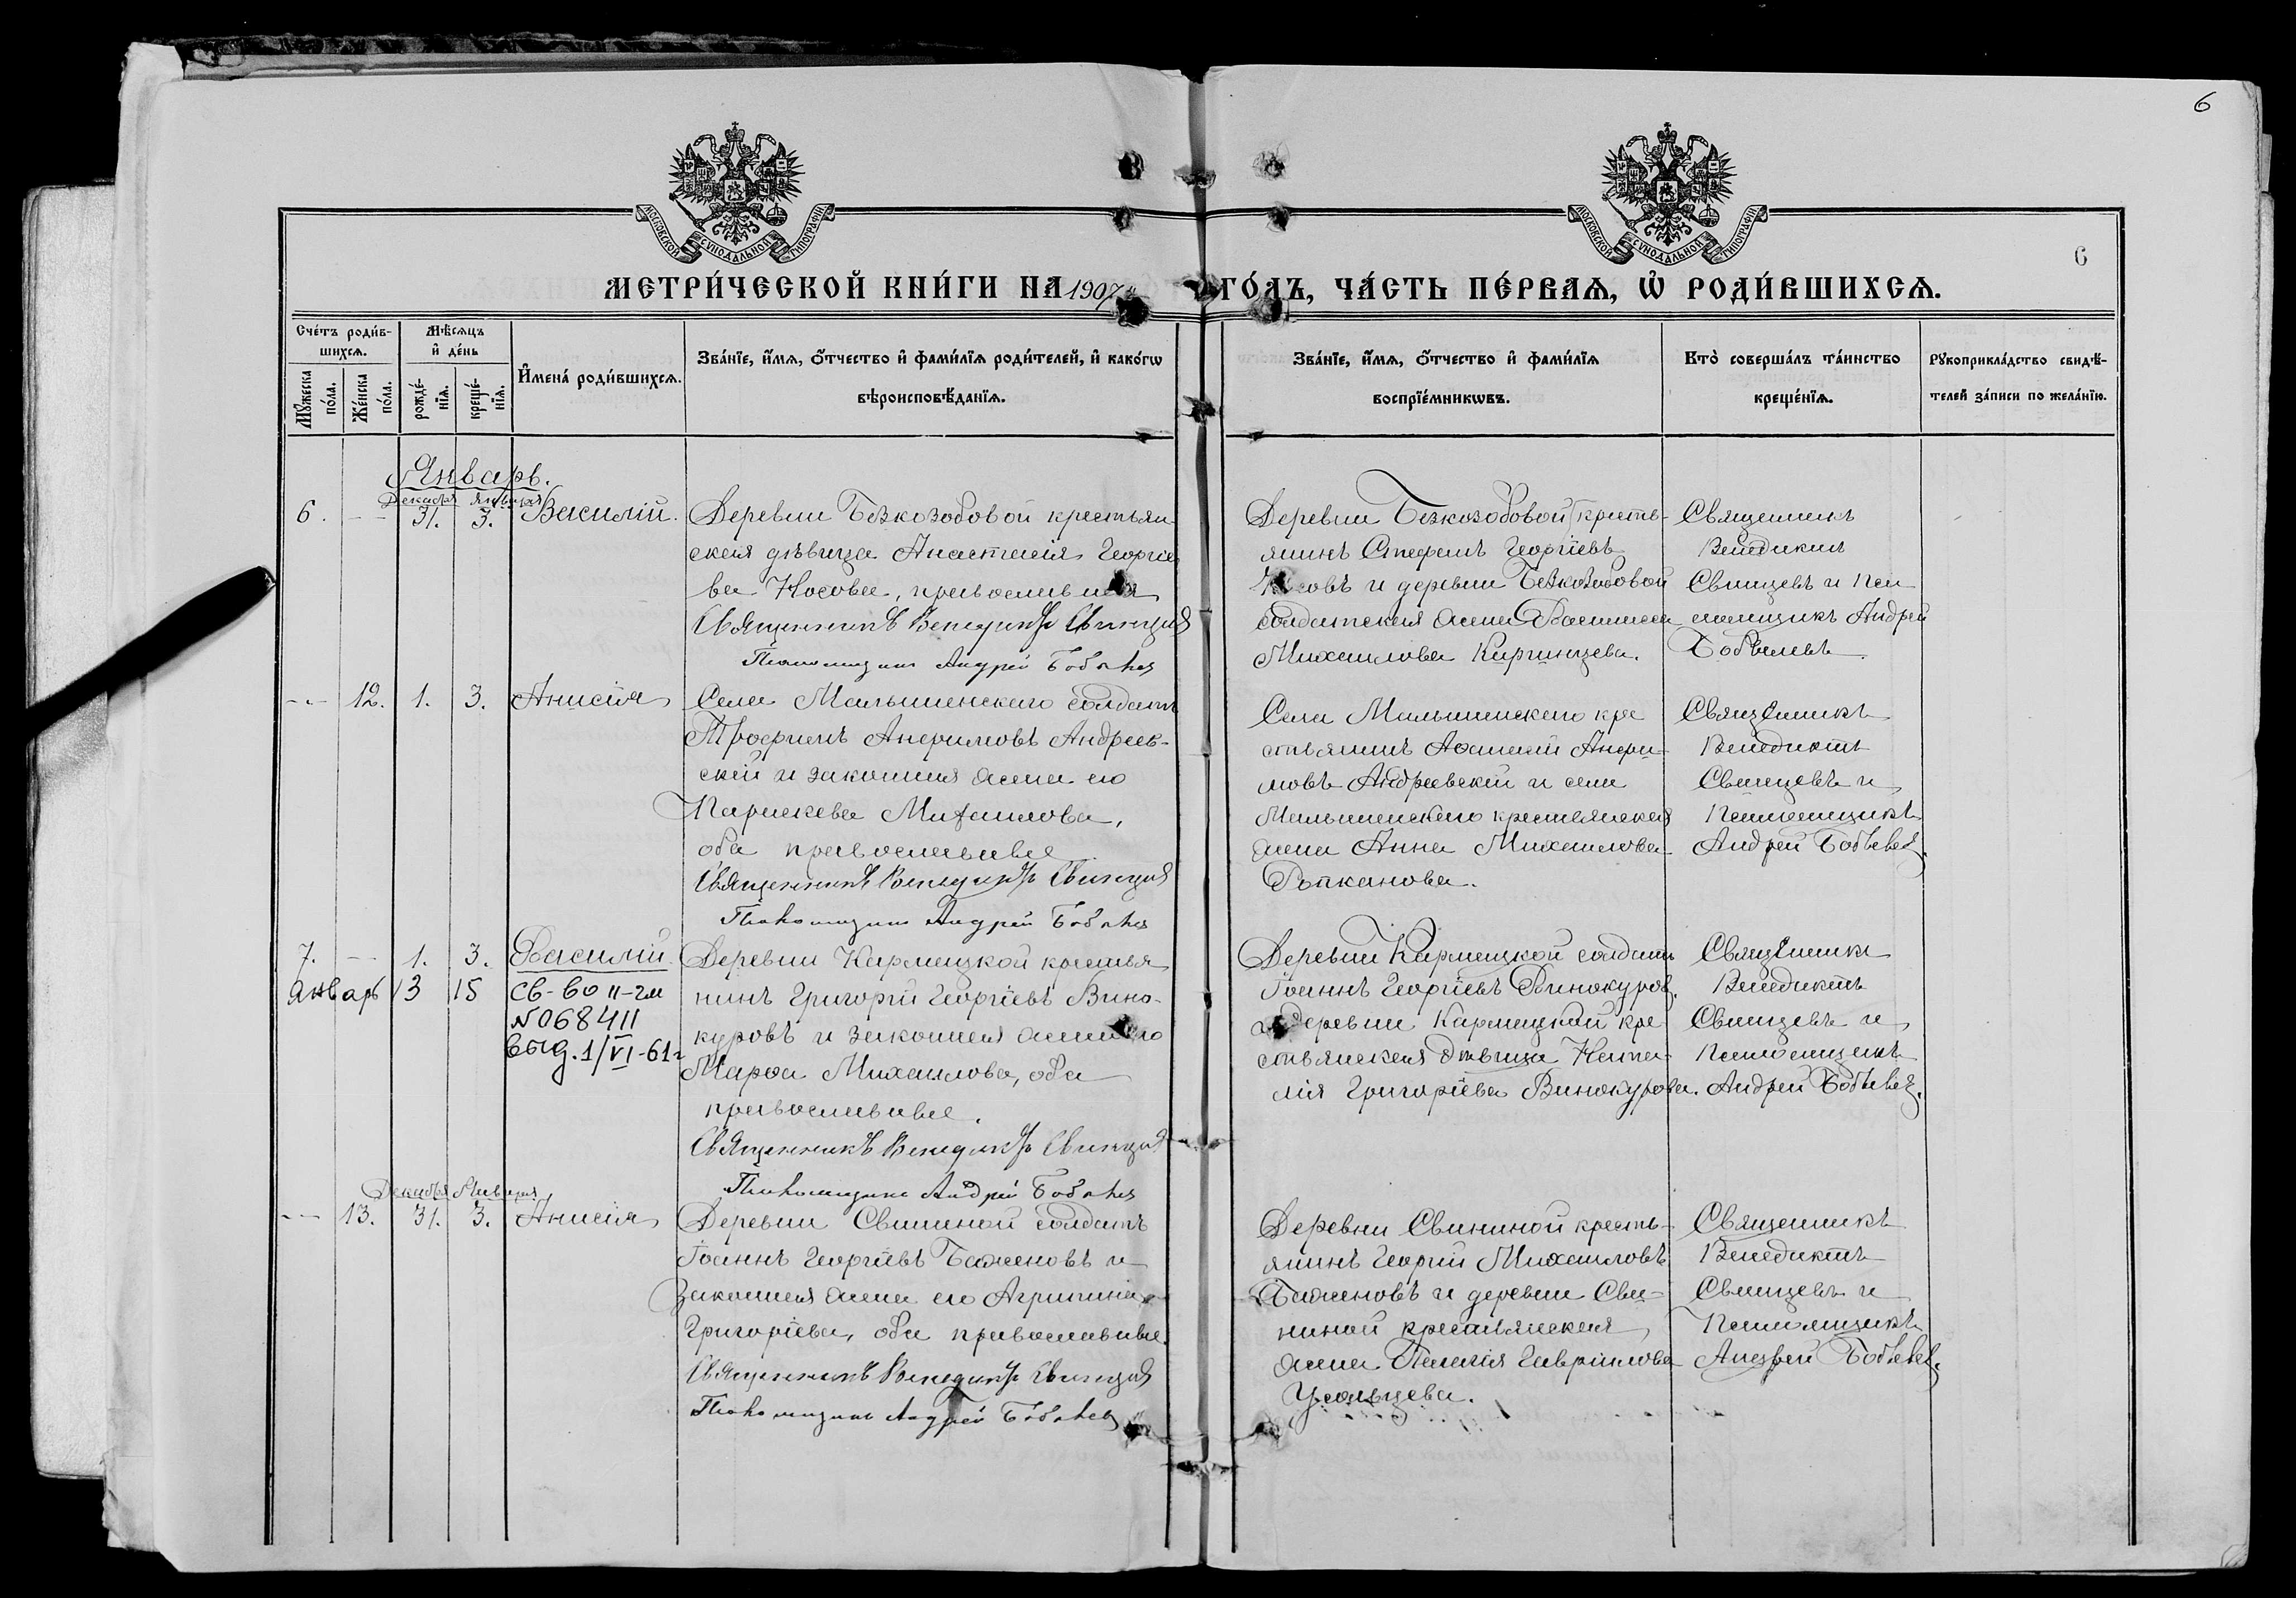 6
МОСКОВСКОЙ СУНОДАЛЬНОЙ ТИПОГРАФІИ
МОСКОВСКОЙ СУНОДАЛЬНОЙ ТИПОГРАФІИ
6
МЕТРИ́ЧЕСКОЙ КНИ́ГИ НА 1907
ГО́ДЪ, ЧА́СТЬ ПЕ́РВАѦ, Ѡ҆ РОДИ́ВШИХСѦ.
Сче́тъ роди́в-
шихсѧ.
Мѣ́сѧцъ
и҆ де́нь
Мꙋ́жеска
по́ла.
Же́нска
по́ла.
рожде́-
нїѧ.
креще́-
нїѧ.
И҆мена́ роди́вшихсѧ.
Зва́нїе, и҆́мѧ, ѻ҆́тчество и҆ фами́лїѧ роди́телей, и҆ како́гѡ
вѣроисповѣ́данїѧ.
Зва́нїе, и҆́мѧ, ѻ҆́тчество и҆ фами́лїѧ
воспрїе́мникѡвъ.
Кто̀ соверша́лъ та́инство
креще́нїѧ.
Рꙋкоприкла́дство свидѣ́-
телей за́писи по жела́нїю.
Январь.
Декабря Января
6. -- 31. 3. Василій.
Деревни Безкозобовой крестьян-
ская дѣвица Анастасія Георгіе
ва Носова, православная
Священникъ Венедиктъ Свинцовъ
Псаломщикъ Андрей
Деревни Безкозобовой кресть-
янинъ Стефанъ Георгіевъ
Носовъ и деревни Безкозобовой
солдатская жена Васса
Михаилова Киргинцева.
Священникъ
Венедиктъ
Свинцовъ и Пса
ломщикъ Андрей
-- 12. 1. 3. Анисія
Села Малышенскаго солдатъ
Трофимъ Анфимовъ Андреев-
скій и законная жена его
Параскева Михаилова,
оба православные
Священникъ Венедиктъ Свинцовъ
Псаломщикъ Андрей
Села Малышенскаго кре
стьянинъ Анфи-
мовъ Андреевскій и села
Малышенскаго крестьянская
жена Анна Михаилова
Священникъ
Венедиктъ
Свинцовъ и
Псаломщикъ
Андрей
7. -- 1. 3. Василій
Январь 13 15 св-во II-ги
№068411
выд. 1/VI-61г
Деревни Кармацкой крестья
нинъ Григорій Георгіевъ Вино-
куровъ и законная жена его
Марѳа Михаилова, оба
православные.
Священникъ Венедиктъ Свинцовъ
Псаломщикъ Андрей
Деревни Кармацкой солдатъ
Іоаннъ Георгіевъ Винокуров.
и деревни Кармацкой кре
стьянская дѣвица Ната-
лія Григоріева Винокурова.
Священникъ
Венедиктъ
Свинцовъ и
Псаломщикъ
Андрей
Декабря Января
-- 13. 31. 3. Анисія
Деревни Свининой солдатъ
Іоаннъ Георгіевъ Баженовъ и
Законная жена его Агрипина
Григоріева, оба православные.
Священникъ Венедиктъ Свинцовъ
Псаломщикъ Андрей
Деревни Свининой кресть-
янинъ Георгій Михаиловъ
Баженовъ и деревни Сви-
ниной крестьянская
жена Пелагія Гаврилова
Усольцева.
Священникъ
Венедиктъ
Свинцовъ и
Псаломщикъ
Андрей